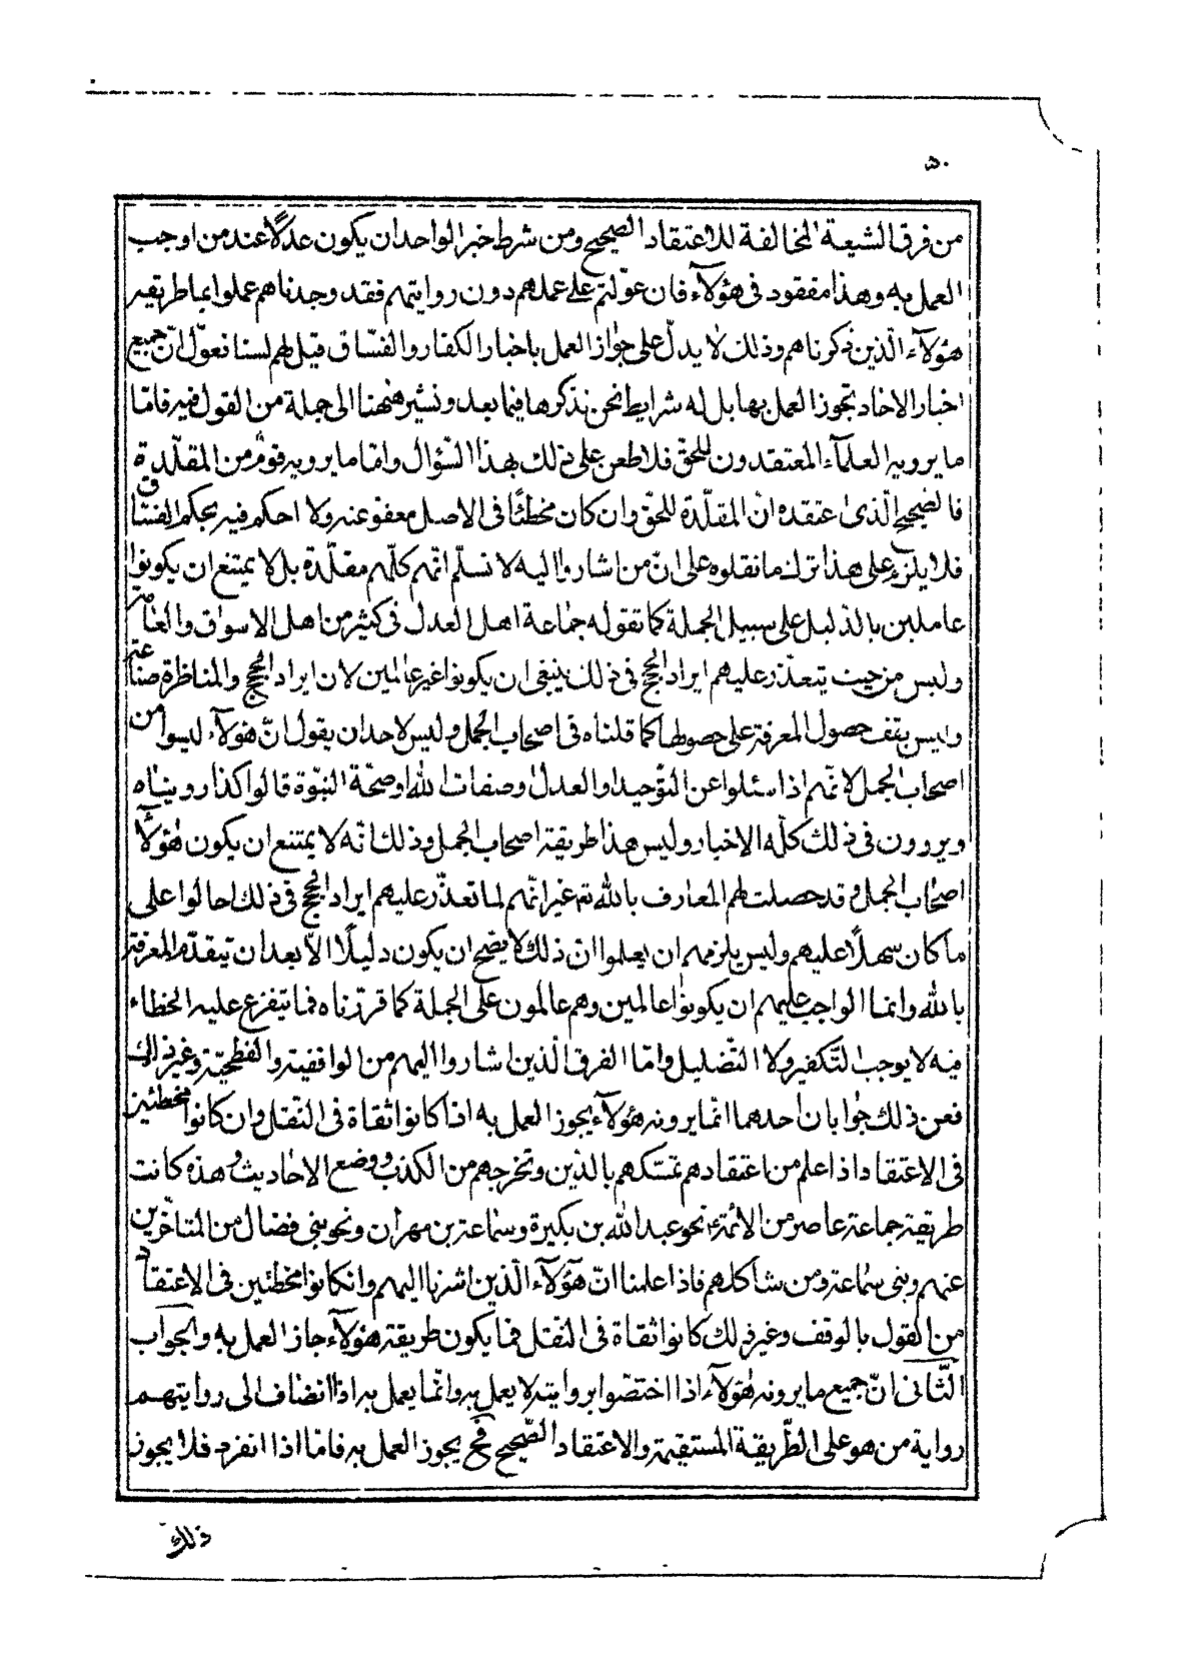 ٥٠
من فرق الشيعة المخالفة للاعتقاد الصحيح ومن شرط خبر الواحد ان يكون عدلًا عند من اوجب
العمل به وهذا مفقود فى هؤلآء فان عوّلتم على عملهم دون روايتهم فقد وجدناهم عملوا بما طريقه
هؤلآء الّذين ذكرناهم وذلك لا يدلّ على جواز العمل باخبار الكفار والفسّاق قيل لهم لسنا نقول انّ جميع
اخبار الاحاد تجوز العمل بها بل له شرايط نحن نذكرها فيما بعد ونشير ههنا الى جملة من القول فيه فامّا
ما يرويه العلمآء المعتقدون للحقّ فلا طعن على ذلك بهذا السّؤال وامّا ما يرويه قوم من المقلّدة
فالصّحيح الّذى اعتقده انّ المقلّدة للحقّ وان كان مخطئًا فى الاصل معفو عنه ولا احكم فيه بحكم الفسّاق
فلا يلزم على هذا ترك ما نقلوه على انّ من اشاروا اليه لا نسلّم انّهم كلّهم مقلّدة بل لا يمتنع ان يكونوا
عاملين بالدّليل على سبيل الجملة كما تقوله جماعة اهل العدل فى كثير من اهل الاسواق والعامّة
وليس من حيث يتعذّر عليهم ايراد الحجج فى ذلك ينبغى ان يكونوا غير عالمين لان ايراد الحجج والمناظرة صناعة
وليس يقف حصول المعرفة على حصولها كما قلناه فى اصحاب الجمل وليس لاحد ان يقول انّ هؤلآء ليسوا من
اصحاب الجمل لانّهم اذا سئلوا عن التّوحيد او العدل او صفات الله او صحّة النبّوة قالوا كذا روينا
ويروون فى ذلك كلّه الاخبار وليس هذا طريقة اصحاب الجمل وذلك انّه لا يمتنع ان يكون هؤلآء
اصحاب الجمل وقد حصلت لهم المعارف بالله تع غير انّهم لما تعذّر عليهم ايراد الحجج فى ذلك احالوا على
ما كان سهلًا عليهم وليس يلزمهم ان يعلموا ان ذلك لا يصح ان يكون دليلًا الّا بعد ان يتقدم المعرفة
بالله وانما الواجب عليهم ان يكونوا عالمين وهم عالمون على الجملة كما قرّرناه فما يتفرع عليه الخطاء
فيه لا يوجب التّكفير ولا التّضليل وامّا الفرق الّذين اشاروا اليهم من الواقفية والفطحيّة وغير ذلك
فعن ذلك جوابان احدهما انّ ما يرونه هؤلآء يجوز العمل به اذا كانوا ثقاة فى النّقل وان كانوا مخطئين
فى الاعتقاد اذا علم من اعتقادهم تمسّكهم بالدّين وتحرجهم من الكذب ووضع الاحاديث وهذه كانت
طريقة جماعة عاصر من الائمة ع نحو عبد الله بن بكيرة وسماعة بن مهران ونحو بنى فضال من المتاخّرين
عنهم وبنى سماعة ومن شاكلهم فاذا علمنا انّ هؤلآء الّذين اشرنا اليهم وان كانوا مخطئين فى الاعتقاد
من القول بالوقف وغير ذلك كانوا ثقاة فى النّقل فما يكون طريقة هؤلآء جاز العمل به والجواب
الثّانى انّ جميع ما يرونه هؤلآء اذا اختصّوا بروايته لا يعمل به وانّما يعمل به اذا انضاف الى روايتهم
رواية من هو على الطّريقة المستقيمة والاعتقاد الصّحيح فح يجوز العمل به فامّا اذا انفرد فلا يجوز
ذلك